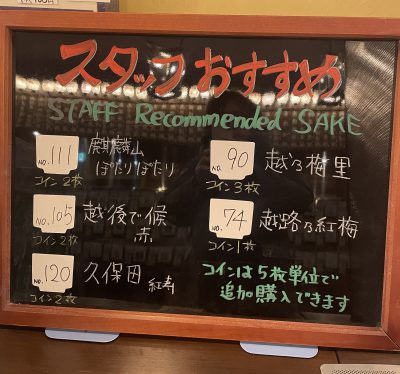 スタッフおすすめ
STAFF Recommended SAKE
NO. 111
コイン2枚
麒麟山
ぽたりぽたり
NO. 105
コイン2枚
越後で候
赤
NO. 120
コイン2枚
久保田 紅寿
NO. 90
コイン3枚
越乃梅里
NO. 74
コイン1枚
越路乃紅梅
コインは5枚単位で
追加購入できます